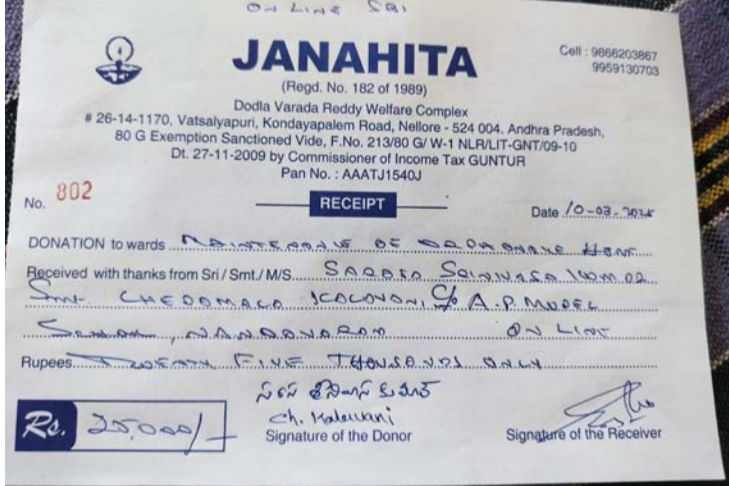 ON LINE SBI
JANAHITA
Cell : 9866203867
9959130703
(Regd. No. 182 of 1989)
Dodla Varada Reddy Welfare Complex
# 26-14-1170, Vatsalyapuri, Kondayapalem Road, Nellore - 524 004. Andhra Pradesh,
80 G Exemption Sanctioned Vide, F.No. 213/80 G/ W-1 NLR/LIT-GNT/09-10
Dt. 27-11-2009 by Commissioner of Income Tax GUNTUR
Pan No. : AAATJ1540J
No. 802
RECEIPT
Date 10-03-
DONATION to wards MAINTENANCE OF ORPHANAGE HOME
Received with thanks from Sri / Smt./ M/S. SARASA SRINIVASA KUMAR
Smt. CHEDAMALA KALAVANI C/o A.P. MODEL
NANDAVARAM ON LINE
Rupees TWENTY FIVE THOUSANDS ONLY
Rs. 25,000/-
Ch. Kalavani
Signature of the Donor
Signature of the Receiver